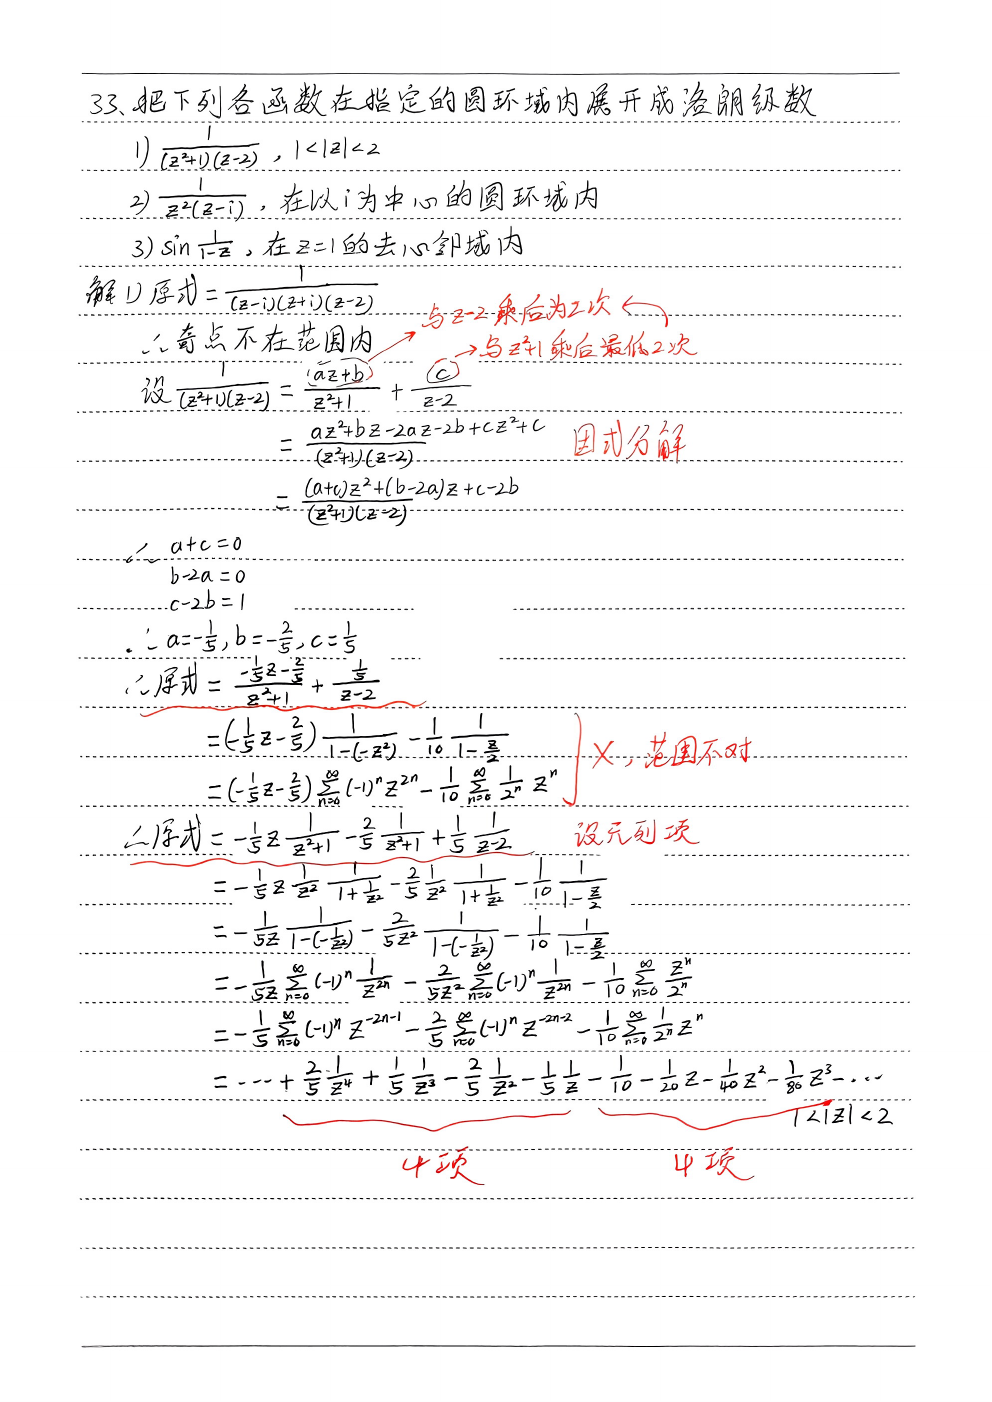 33、把下列各函数在指定的圆环域内展开成洛朗级数
1) 1/((z²+1)(z-2)), 1<|z|<2
2) 1/(z²(z-i)), 在以i为中心的圆环域内
3) sin 1/(1-z), 在z=1的去心邻域内
解 1) 原式 = 1/((z-i)(z+i)(z-2))
与z-2乘后为2次
∴奇点不在范围内
与z²+1乘后最低2次
设 1/((z²+1)(z-2)) = (az+b)/(z²+1) + c/(z-2)
= (az²+bz-2az-2b+cz²+c)/((z²+1)(z-2)) 因式分解
= ((a+c)z²+(b-2a)z+c-2b)/((z²+1)(z-2))
∴ a+c=0
b-2a=0
c-2b=1
∴ a=-1/5, b=-2/5, c=1/5
∴原式 = (-1/5 z - 2/5)/(z²+1) + (1/5)/(z-2)
= (-1/5 z - 2/5) 1/(1-(-z²)) - 1/10 1/(1-z/2)
X, 范围不对
= (-1/5 z - 2/5) ∑_{n=0}^{∞} (-1)ⁿ z²ⁿ - 1/10 ∑_{n=0}^{∞} 1/2ⁿ zⁿ
∴原式 = -1/5 z 1/(z²+1) - 2/5 1/(z²+1) + 1/5 1/(z-2) 设元列项
= -1/5 z 1/z² 1/(1+1/z²) - 2/5 1/z² 1/(1+1/z²) - 1/10 1/(1-z/2)
= -1/(5z) 1/(1-(-1/z²)) - 2/(5z²) 1/(1-(-1/z²)) - 1/10 1/(1-z/2)
= -1/(5z) ∑_{n=0}^{∞} (-1)ⁿ 1/z²ⁿ - 2/(5z²) ∑_{n=0}^{∞} (-1)ⁿ 1/z²ⁿ - 1/10 ∑_{n=0}^{∞} zⁿ/2ⁿ
= -1/5 ∑_{n=0}^{∞} (-1)ⁿ z^{-2n-1} - 2/5 ∑_{n=0}^{∞} (-1)ⁿ z^{-2n-2} - 1/10 ∑_{n=0}^{∞} 1/2ⁿ zⁿ
= ··· + 2/5 1/z⁴ + 1/5 1/z³ - 2/5 1/z² - 1/5 1/z - 1/10 - 1/20 z - 1/40 z² - 1/80 z³ - ···
1<|z|<2
4项 4项